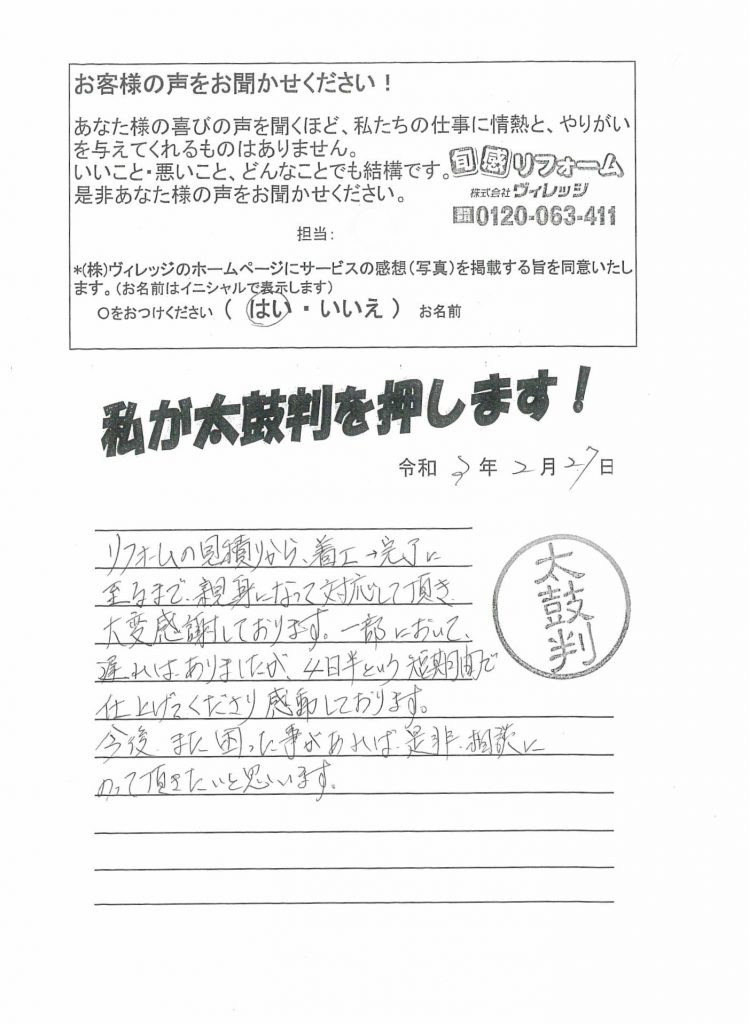 お客様の声をお聞かせください！
あなた様の喜びの声を聞くほど、私たちの仕事に情熱と、やりがい
を与えてくれるものはありません。
いいこと・悪いこと、どんなことでも結構です。
是非あなた様の声をお聞かせください。
旬感リフォーム
株式会社 ヴィレッジ
0120-063-411
担当：
*(株)ヴィレッジのホームページにサービスの感想（写真）を掲載する旨を同意いたし
ます。（お名前はイニシャルで表示します）
〇をおつけください （ はい ・ いいえ ） お名前
私が太鼓判を押します！
令和 3 年 2 月 27 日
リフォームの見積りから、着工→完了に
至るまで、親身になって対応して頂き
大変感謝しております。一部において、
遅れはありましたが、4日半という短期間で
仕上げてくださり感動しております。
今後、また困った事があれば、是非、相談に
のって頂きたいと思います。
太鼓判